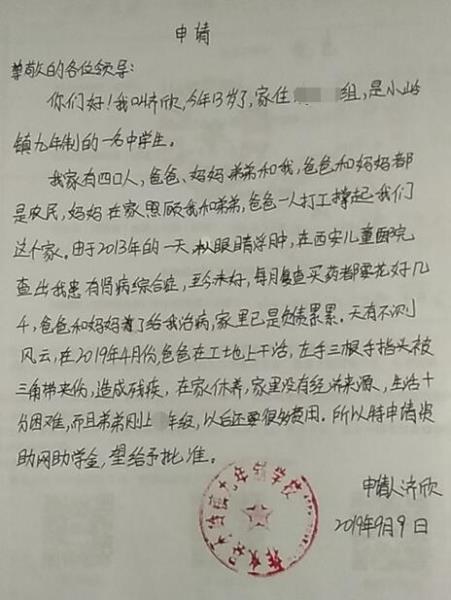 申请
尊敬的各位领导:
你们好!我叫济欣,今年13岁了,家住 组,是小岭
镇九年制的一名中学生。
我家有四口人,爸爸、妈妈弟弟和我,爸爸和妈妈都
是农民,妈妈在家照顾我和弟弟,爸爸一人打工撑起我们
这个家。由于2013年的一天 眼睛浮肿,在西安儿童医院
查出我患有肾病综合症,至今未好,每月复查买药都要花好几
千,爸爸和妈妈为了给我治病,家里已是负债累累。天有不测
风云,在2019年4月份,爸爸在工地上干活,左手三根手指头被
三角带夹伤,造成残疾,在家休养,家里没有经济来源,生活十
分困难,而且弟弟刚上 年级,以后还要很多费用。所以特申请资
助网助学金,望给予批准。
申请人济欣
2019年9月9日
镇九年制学校